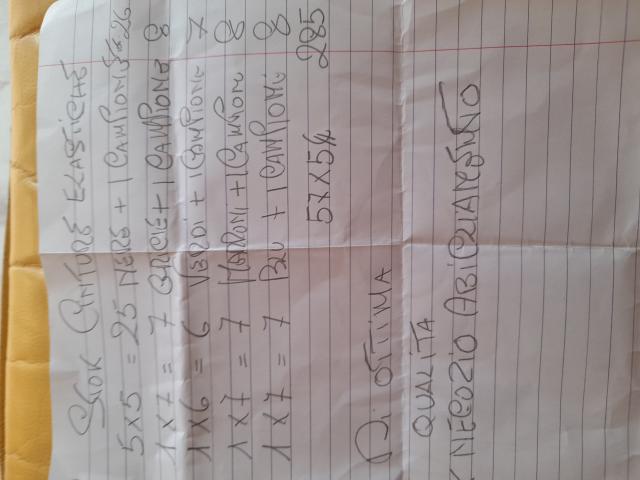 STOK CINTURE ELASTICHE
5x5 = 25 NERE + 1 CAMPIONE 26
1x7 = 7 GRIGIE + 1 CAMPIONE 8
1x6 = 6 VERDI + 1 CAMPIONE 7
1x7 = 7 MARRONI + 1 CAMPIONI 8
1x7 = 7 BLU + 1 CAMPIONI 8
57 x 5 285
DI OTTIMA
QUALITA
X NEGOZIO ABIGLIAMENTO